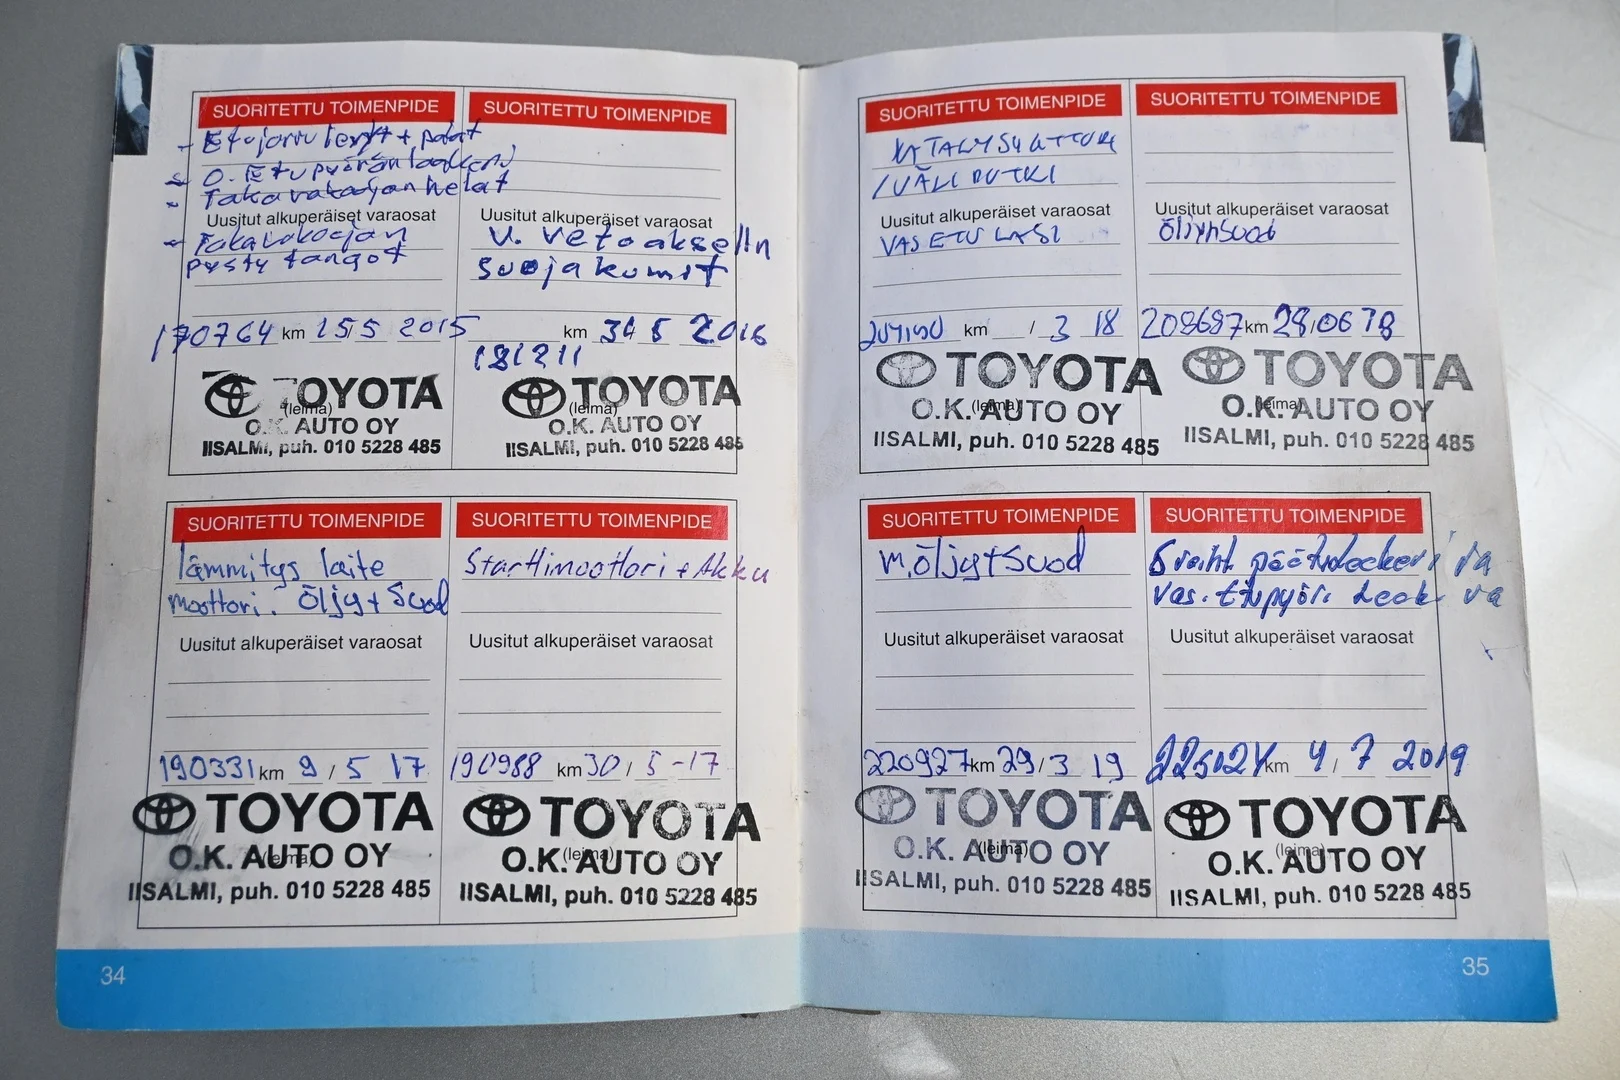 SUORITETTU TOIMENPIDE
- Etujarrulevyt + palat
- O. Etupyörän laakeri
- Takavakaajan helat
Uusitut alkuperäiset varaosat
- Takavakaajan
pystytangot
170764 km 15 5 2015
TOYOTA
(leima)
O.K. AUTO OY
IISALMI, puh. 010 5228 485
SUORITETTU TOIMENPIDE
Uusitut alkuperäiset varaosat
V. vetoakselin
suojakumit
km 2016
181211
TOYOTA
(leima)
O.K. AUTO OY
IISALMI, puh. 010 5228 485
SUORITETTU TOIMENPIDE
lämmitys laite
Moottori. Öljy + Suod
Uusitut alkuperäiset varaosat
190331 km 9 / 5 17
TOYOTA
(leima)
O.K. AUTO OY
IISALMI, puh. 010 5228 485
SUORITETTU TOIMENPIDE
Starttimoottori + Akku
Uusitut alkuperäiset varaosat
190988 km 30 / 5 -17
TOYOTA
(leima)
O.K. AUTO OY
IISALMI, puh. 010 5228 485
34
SUORITETTU TOIMENPIDE
KATALYSAATTORI
/VÄLIPUTKI
Uusitut alkuperäiset varaosat
VAS ETULASI
km / 3 18
TOYOTA
(leima)
O.K. AUTO OY
IISALMI, puh. 010 5228 485
SUORITETTU TOIMENPIDE
Uusitut alkuperäiset varaosat
Öljynsuod
208687 km
TOYOTA
(leima)
O.K. AUTO OY
IISALMI, puh. 010 5228 485
SUORITETTU TOIMENPIDE
M.öljy + Suod
Uusitut alkuperäiset varaosat
220927 km 29 / 3 19
TOYOTA
(leima)
O.K. AUTO OY
IISALMI, puh. 010 5228 485
SUORITETTU TOIMENPIDE
vas. Etupyör.
Uusitut alkuperäiset varaosat
km 4 / 7 2019
TOYOTA
(leima)
O.K. AUTO OY
IISALMI, puh. 010 5228 485
35